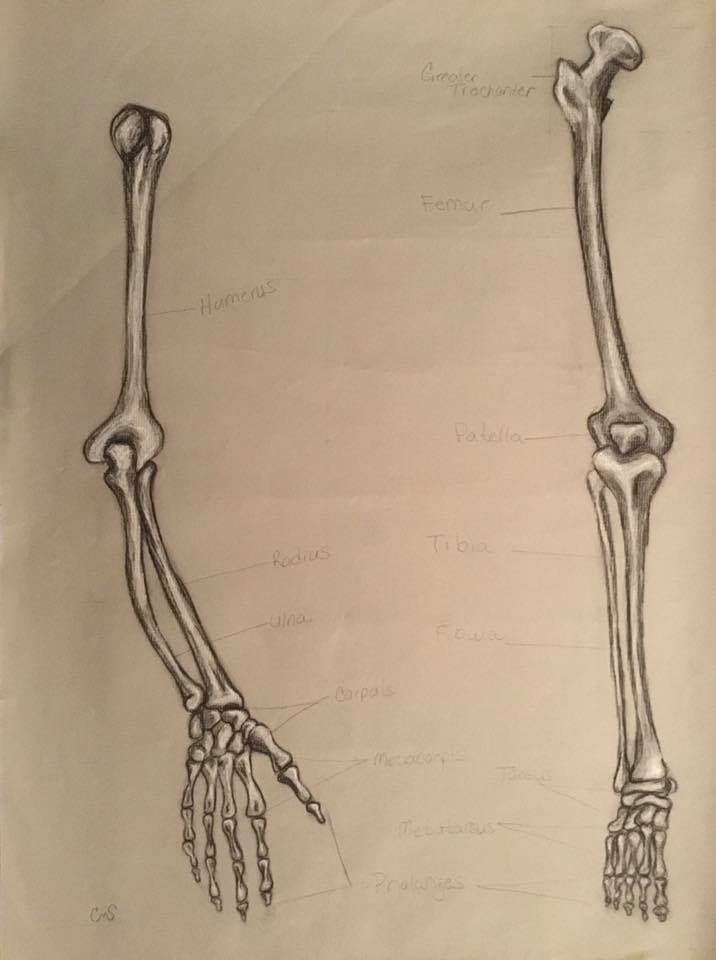 Greater
Trochanter
Femur
Humerus
Patella
Tibia
Radius
Ulna
Fibula
Carpals
Metacarpls
Metatarsus
Phalanges
CMS